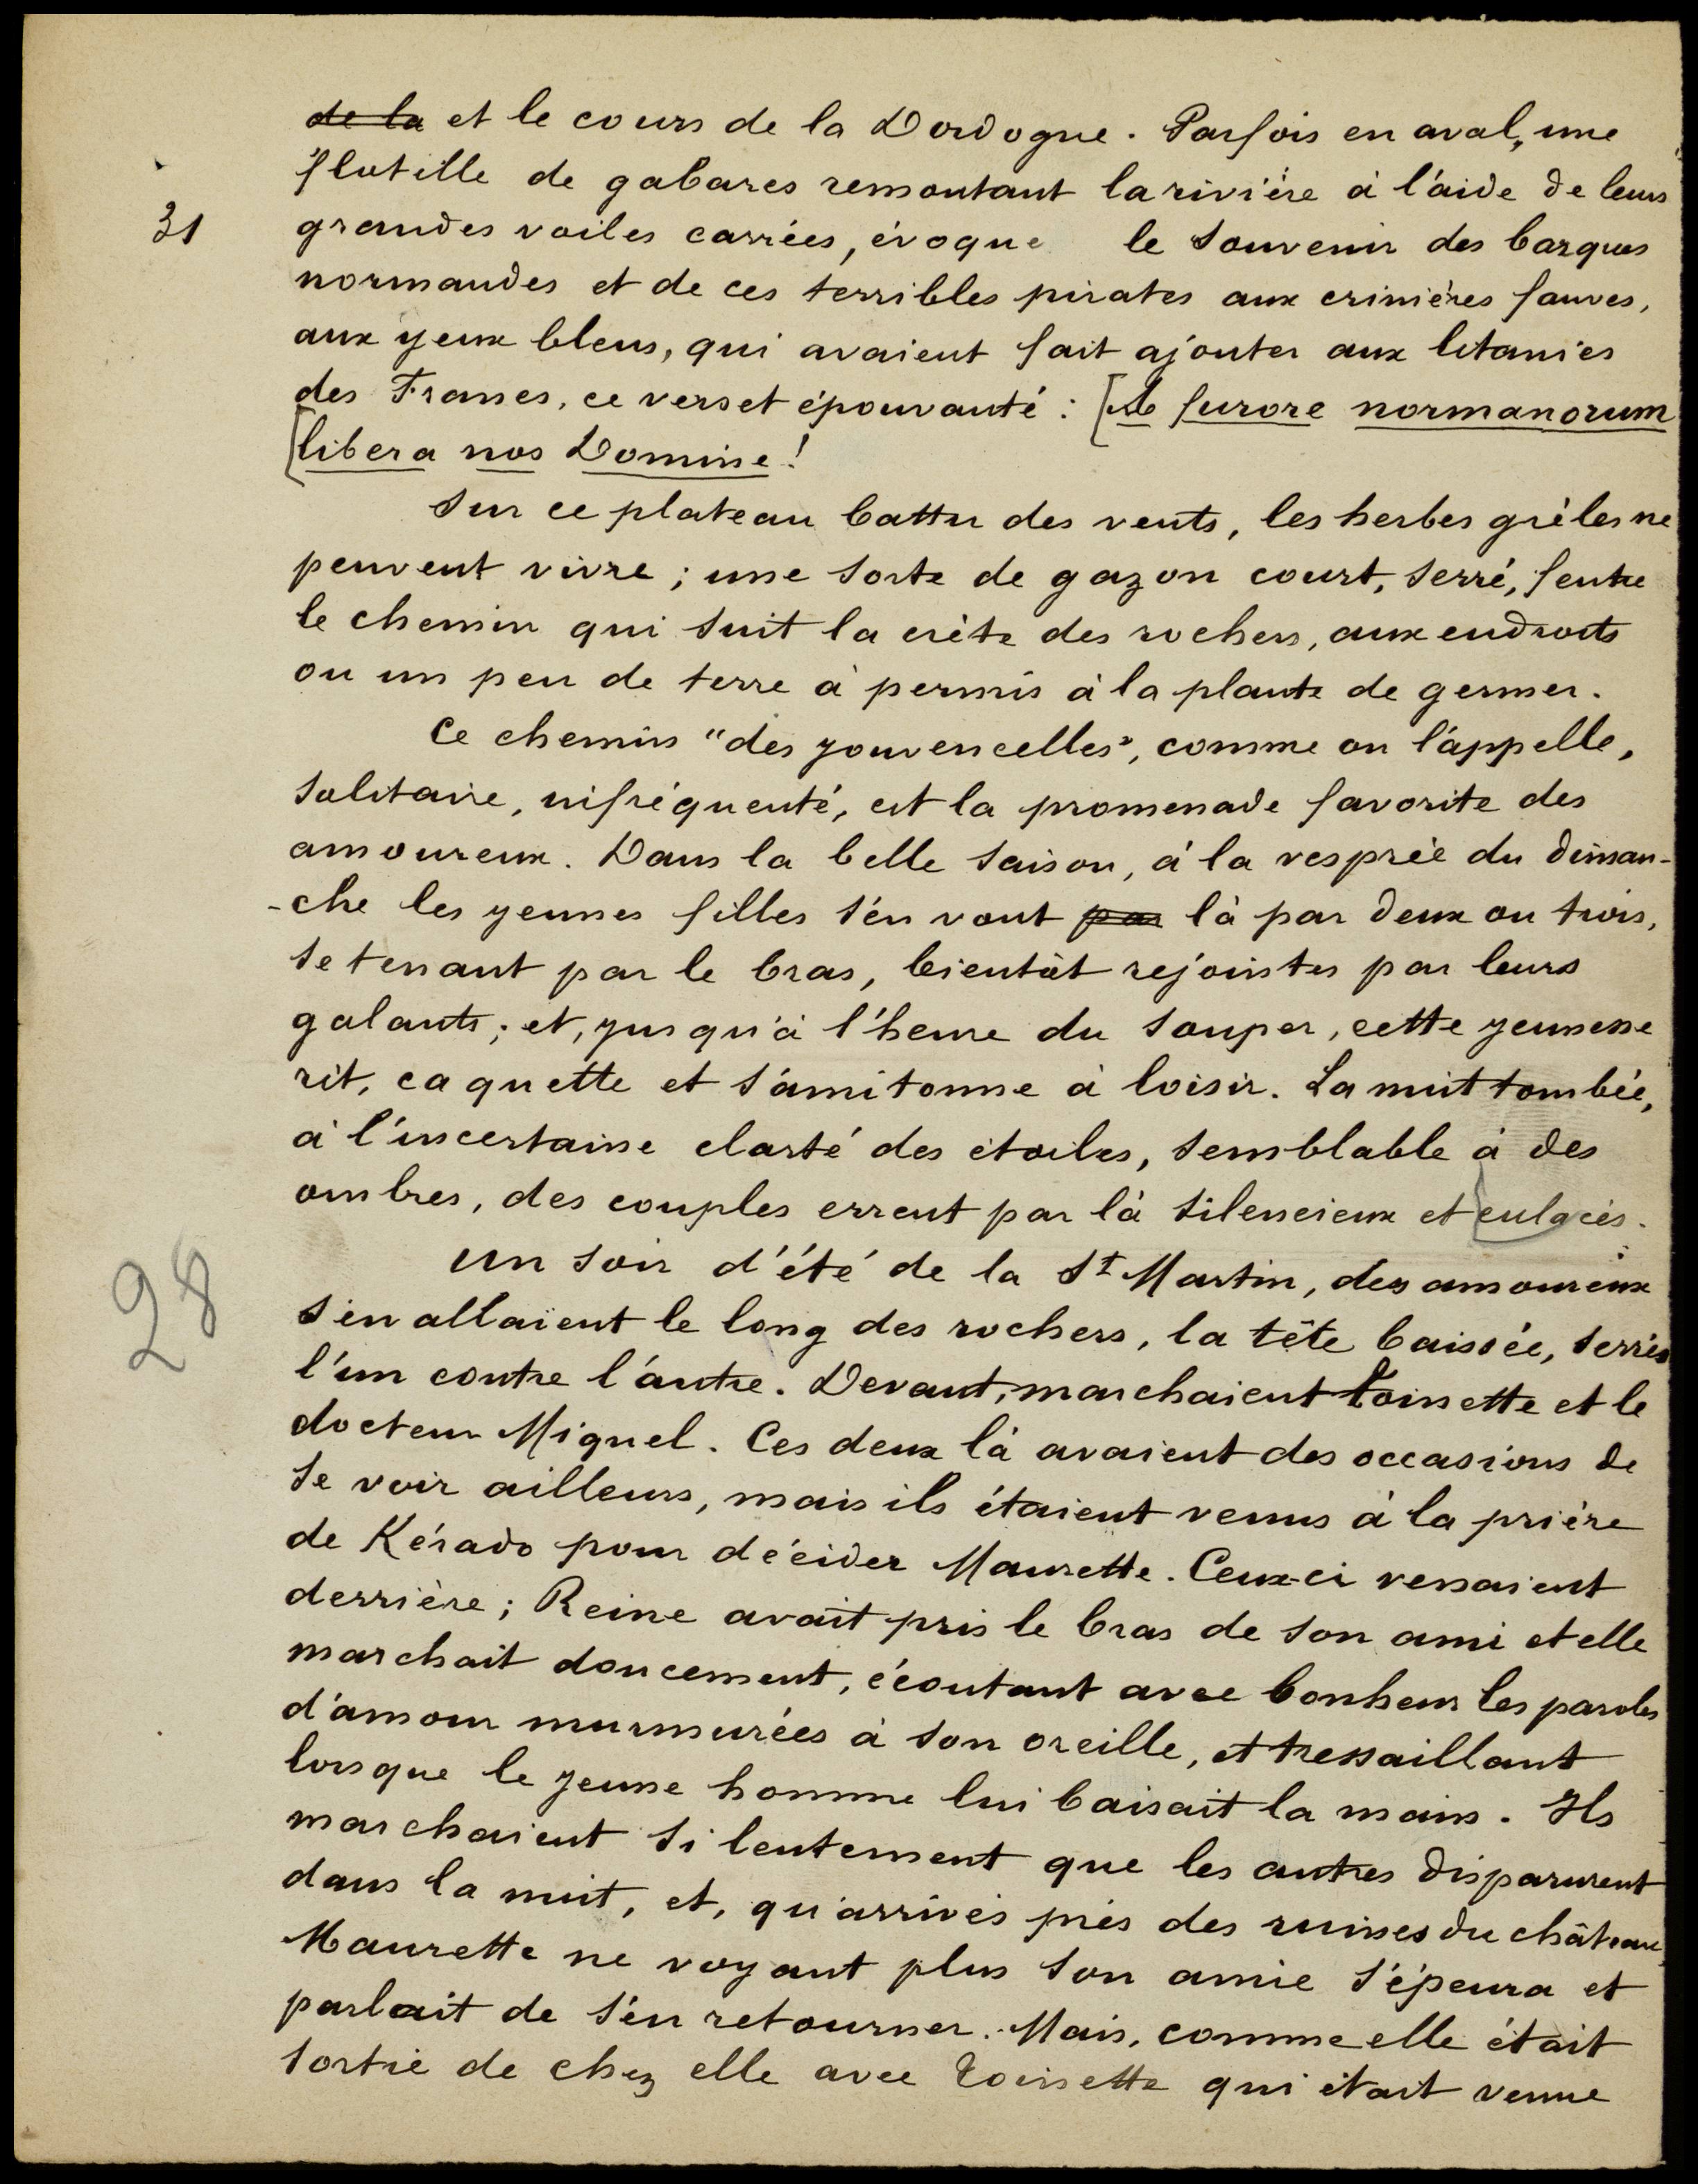 de la et le cours de la Dordogne. Parfois en aval, une
flotille de gabares remontant la rivière à l'aide de leurs
31
grandes voiles carrées, évoque le souvenir des barques
normandes et de ces terribles pirates aux crinières fauves,
aux yeux bleus, qui avaient fait ajouter aux litanies
des Francs, ce verset épouvanté : [A furore normanorum
[libera nos Domine!
Sur ce plateau battu des vents, les herbes grèles ne
peuvent vivre ; une sorte de gazon court, serré, feutre
le chemin qui suit la crète des rochers, aux endroits
ou un peu de terre à permis à la plante de germer.
Ce chemin "des jouvencelles", comme on l'appelle,
solitaire, infréquenté, est la promenade favorite des
amoureux. Dans la belle saison, à la vesprée du diman-
-che les jeunes filles s'en vont par là par deux ou trois,
se tenant par le bras, bientôt rejointes par leurs
galants ; et, jusqu'à l'heure du souper, cette jeunesse
rit, caquette et s'amitonne à loisir. La nuit tombée,
à l'incertaine clarté des étoiles, semblable à des
ombres, des couples errent par là silencieux et [enlacés.
28
Un soir d'été de la St Martin, des amoureux
s'en allaient le long des rochers, la tête baissée, serrés
l'un contre l'autre. Devant, marchaient Toinette et le
docteur Miquel. Ces deux là avaient des occasions de
se voir ailleurs, mais ils étaient venus à la prière
de Kérado pour décider Maurette. Ceux-ci venaient
derrière ; Reine avait pris le bras de son ami et elle
marchait doucement, écoutant avec bonheur les paroles
d'amour murmurées à son oreille, et tressaillant
lorsque le jeune homme lui baisait la main. Ils
marchaient si lentement que les autres disparurent
dans la nuit, et, qu'arrivés près des ruines du château,
Maurette ne voyant plus son amie s'épeura et
parlait de s'en retourner. Mais, comme elle était
sortie de chez elle avec Toinette qui était venue